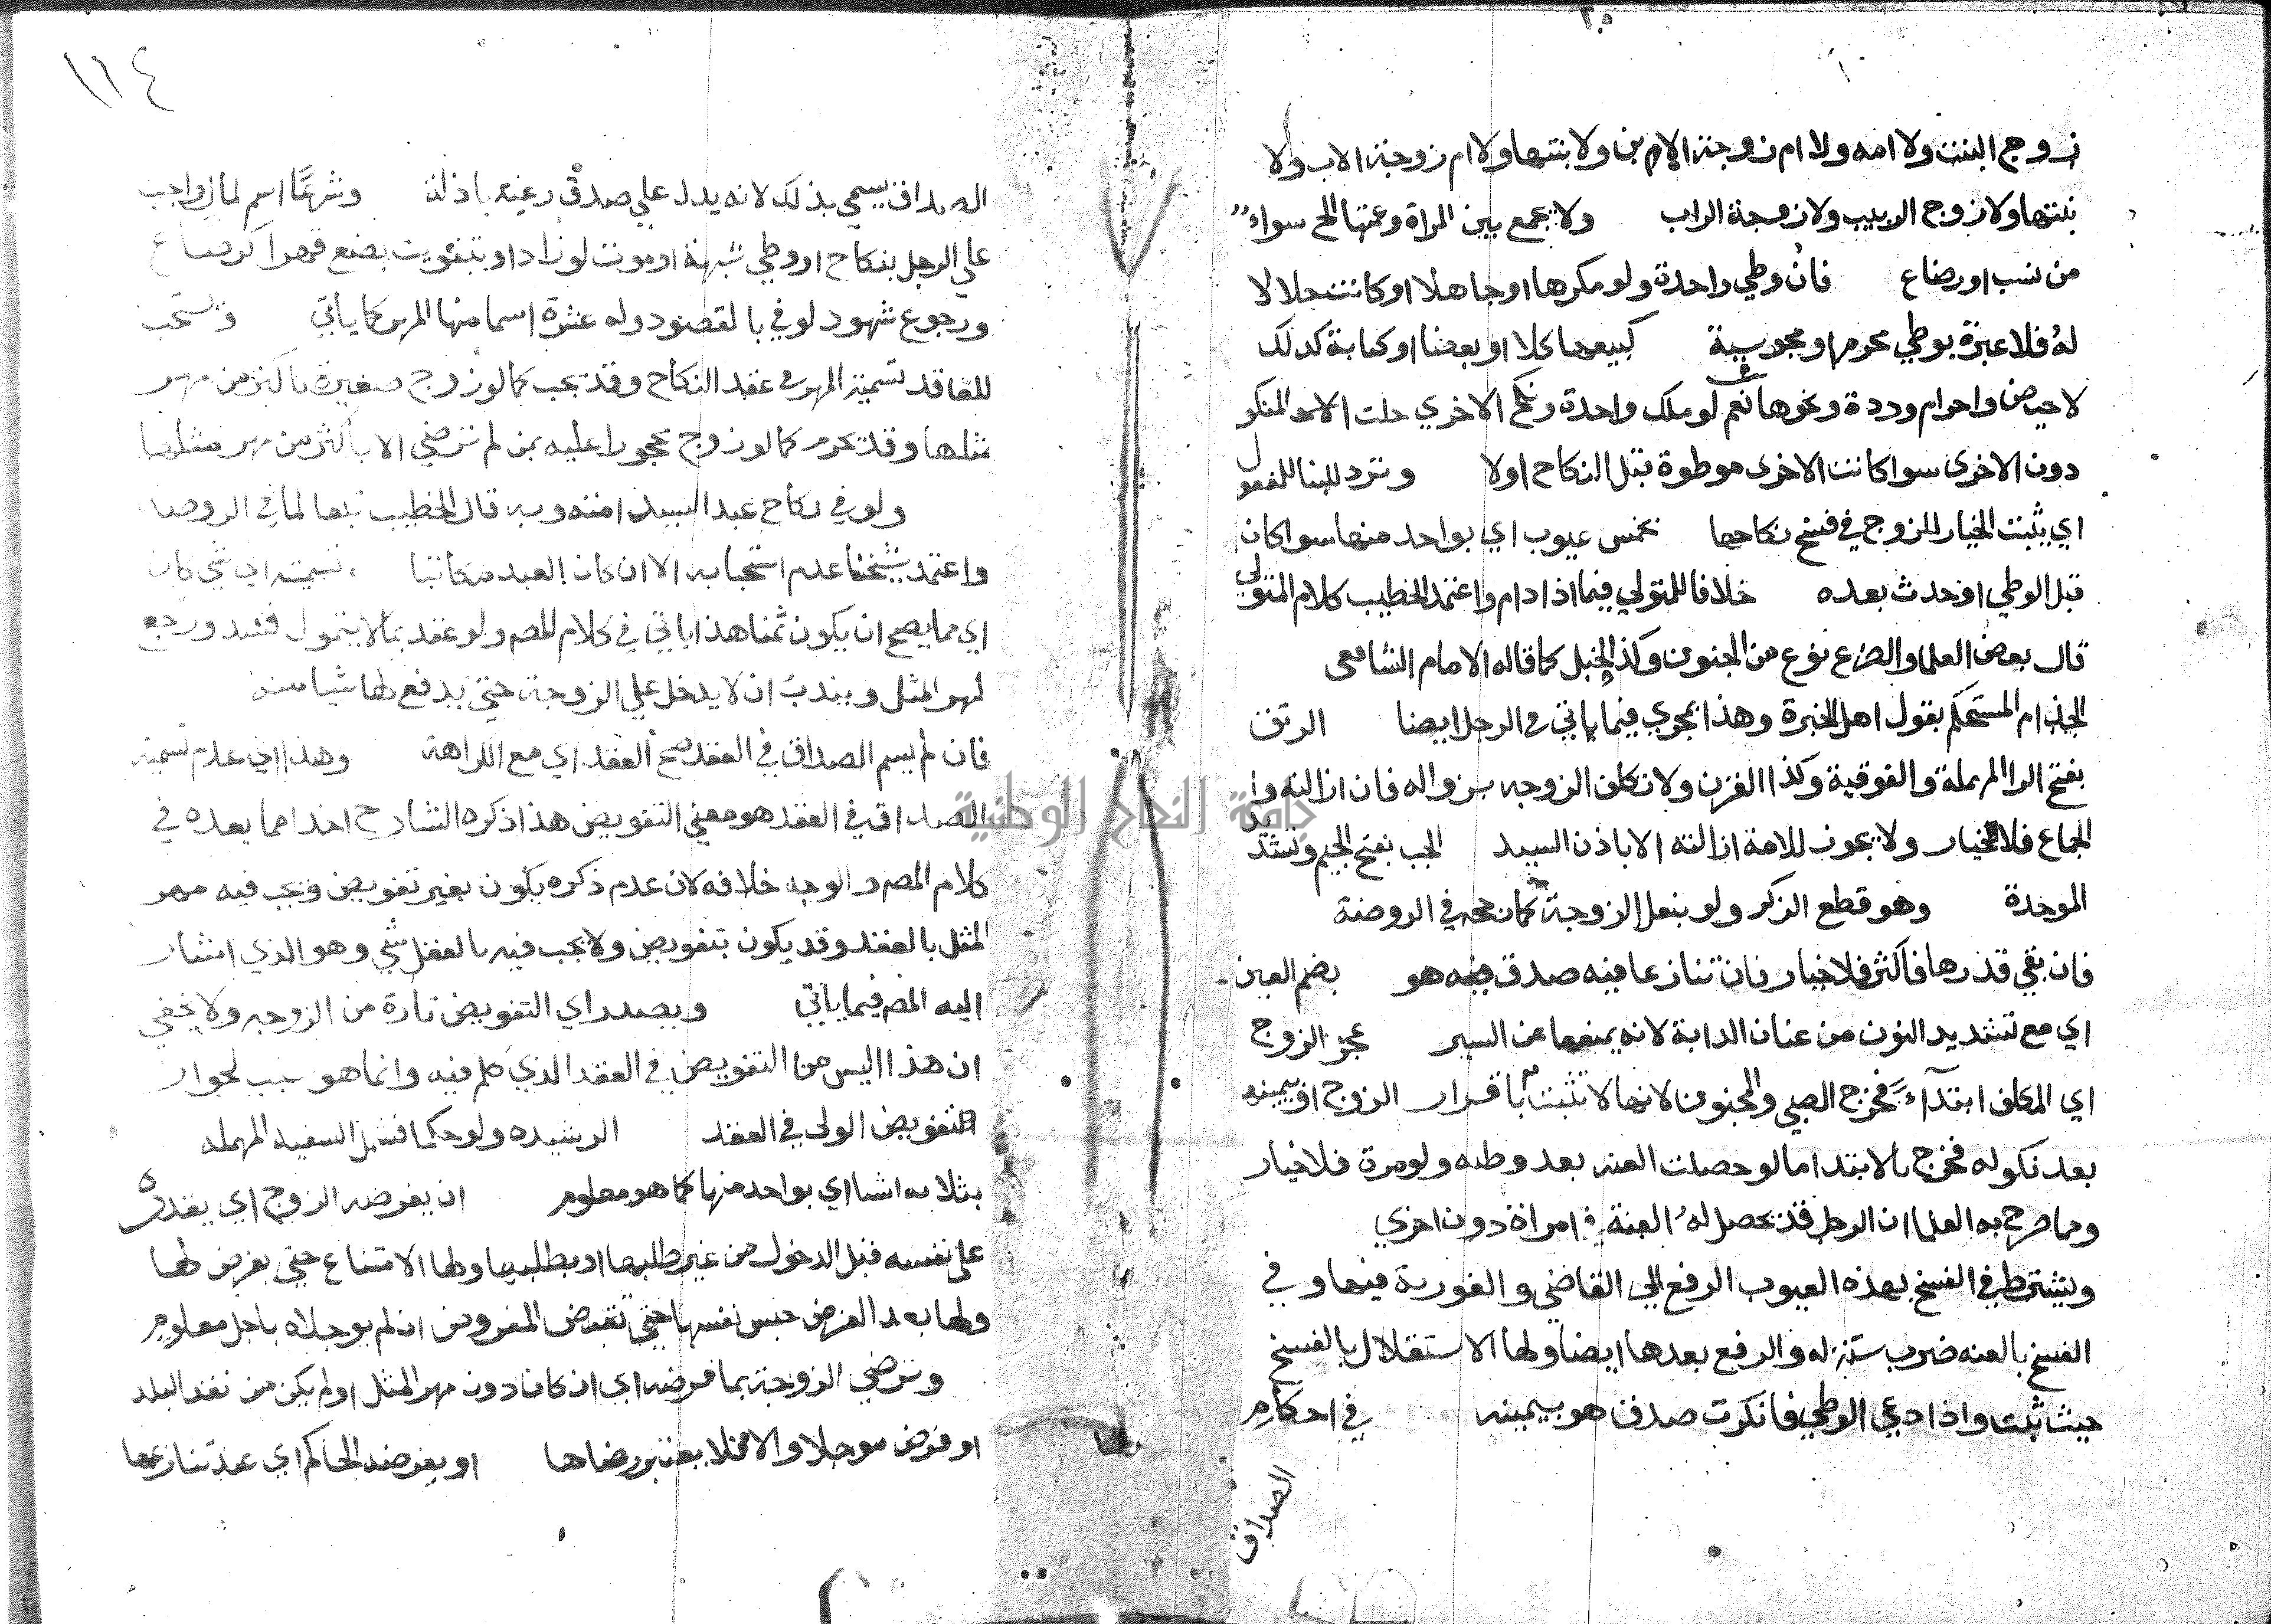 زوج البنت ولا امه ولا ام زوجة الابن ولا بنتها ولا ام زوجة الاب ولا
بنتها ولا زوج الربيب ولا زوجة الراب ولا يجمع بين المراة وعمتها الخ سواء
من نسب او رضاع فان وطي واحدة ولو مكرها او جاهلا او كانت حلالا
له فلا عبرة بوطي محرم او مجوسية كبيعها كلا او بعضا او كتابة كذلك
لا حيض واحرام وردة ونحوها نعم لو ملك واحدة ونكح الاخري حلت المنكو
دون الاخرى سوا كانت الاخرى موطوة قبل النكاح اولا وترد للبنا للمفعول
اي يثبت الخيار للزوج في فسخ نكاحها بخمس عيوب اي بواحد منها سوا كان
قبل الوطي او حدث بعده خلافا للمتولي فيما اذا دام واعتمد الخطيب كلام المتولي
قال بعض العلما والصرع نوع من الجنون وكذا الخبل كما قاله الامام الشافعى
الجذام المستحكم بقول اهل الخبرة وهذا يجري فيما ياتي في الرجل ايضا الرتق
بفتح الرا المهملة والفوقية وكذا القرن ولا تكلف الزوجه بزواله فان ازالته و
الجماع فلا خيار ولا يجوز للامة ازالته الا باذن السيد الجب بفتح الجيم وتشد
الموحدة وهو قطع الذكر ولو بفعل الزوجة كما رجحه في الروضة
فان بقي قدرها فاكثر فلا خيار فان تنازعا فيه صدق هو بضم العين
اي مع تشديد النون من عنان الدابة لانه يمنعها من السير عجز الزوج
اي المكلف ابتداء فخرج الصبي والمجنون لانها لا تثبت الا باقرار الزوج او يمينه
بعد نكوله فخرج بالابتدا ما لو حصلت العنه بعد وطيه ولو مرة فلا خيار
ومما صرح به العلما ان الرجل قد تحصل له العنة في امراة دون اخري
ويشترط في الفسخ بهذه العيوب الرفع الي القاضي والفورية فيها وفي
الفسخ بالعنه ضرب سنة له والرفع بعدها ايضا ولها الاستقلال بالفسخ
حيث ثبت واذا ادعي الوطي فانكرت صدق هو بيمينه في احكام
الصداق
١١٤
الصداق يسمي بذلك لانه يدل علي صدق رغبة باذله وشرعا اسم لما واجب
علي الرجل بنكاح او وطي شبهة او موت لو زاد او بتفويت بضع قهرا كرضاع
ورجوع شهود لوفي بالقصود وله عشرة اسما منها المهر كما ياتي ويستحب
للعاقد تسمية المهر في عقد النكاح وقد يجب كما لو زوج صغيرة باكثر من مهر
مثلها وقد تحرم كما لو زوج محجورا عليه بمن لم ترضي الا باكثر من مهر مثلها
ولو في نكاح عبد السيد امته وبه قال الخطيب تبعا لما في الروضه
واعتمد شيخنا عدم استحبابه الا ان كان العبد مكاتبا تسميته اي شي كان
اي مما يصح ان يكون ثمنا هذا ياتي في كلام المص ولو عقد بما لا يتمول فسد ورجع
لمهر المثل ويندب ان لا يدخل علي الزوجة حتي يدفع لها شيا منه
فان لم يسم الصداق في العقد صح العقد اي مع الكراهة وهذا اي عدم تسمية
الصداق في العقد هو معني التفويض هذا ذكره الشارح اخذا مما بعده في
كلام المص والوجه خلافه لان عدم ذكره يكون بغير تفويض ويجب فيه مهر
المثل بالعقد وقد يكون بتفويض ولا يجب فيه بالعقد شي وهو الذي اشار
اليه المص فيما ياتي ويصدر اي التفويض تارة من الزوجه ولا يخفي
ان هذا ليس من التفويض في العقد الذي كلام فيه وانما هو سبب لجواز
التفويض الولي في العقد الرشيده ولو حكما فشمل السفيه المهمله
بثلاثه اشيا اي بواحد منها كما هو معلوم ان يفرضه الزوج اي يقدره
على نفسه قبل الدخول من غير طلبها او بطلبها ولها الامتناع حتي يفرض لها
ولها بعد الفرض حبس نفسها حتي تقبض المفروض ان لم يوجلاه باجل معلوم
وترضي الزوجة بما فرضه اي ان كان دون مهر المثل او لم يكن من نقد البلد
او فرض موجلا والا فلا يعتبر رضاها او يفرضه الحاكم اي عند تنازعهما
جامعة النجاح الوطنية